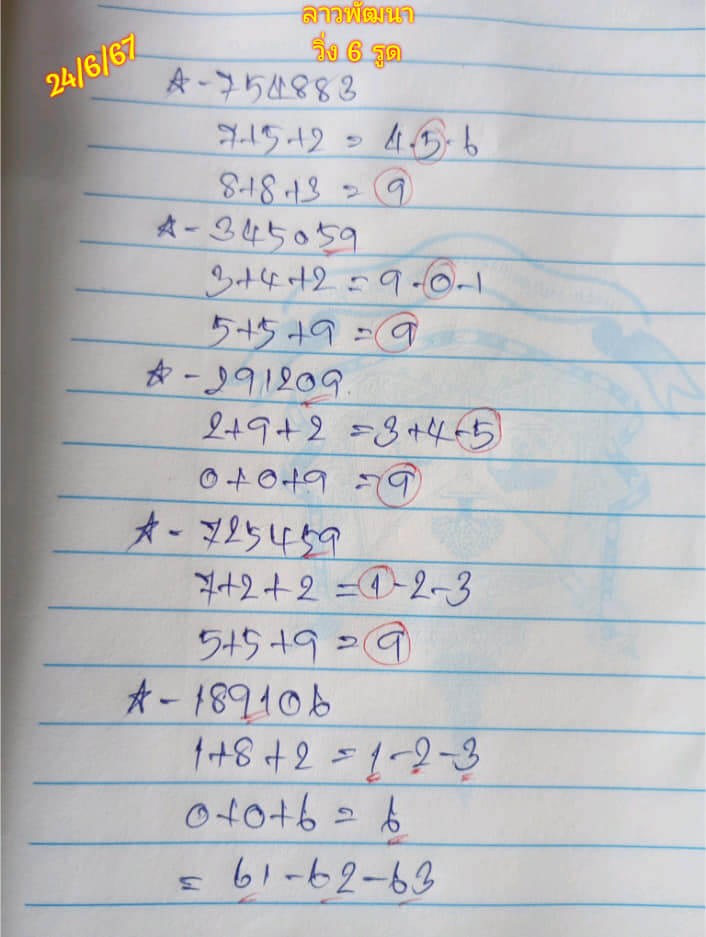 ลาวพัฒนา
วิ่ง 6 รูด
24/6/67
☆ - 754883
7+5+2 = 4.5.6
8+8+3 = 9
☆ - 345059
3+4+2 = 9-0-1
5+5+9 = 9
☆ - 291209.
2+9+2 = 3+4-5
0+0+9 = 9
☆ - 725459
7+2+2 = 1-2-3
5+5+9 = 9
☆ - 189106
1+8+2 = 1-2-3
0+0+6 = 6
= 61-62-63